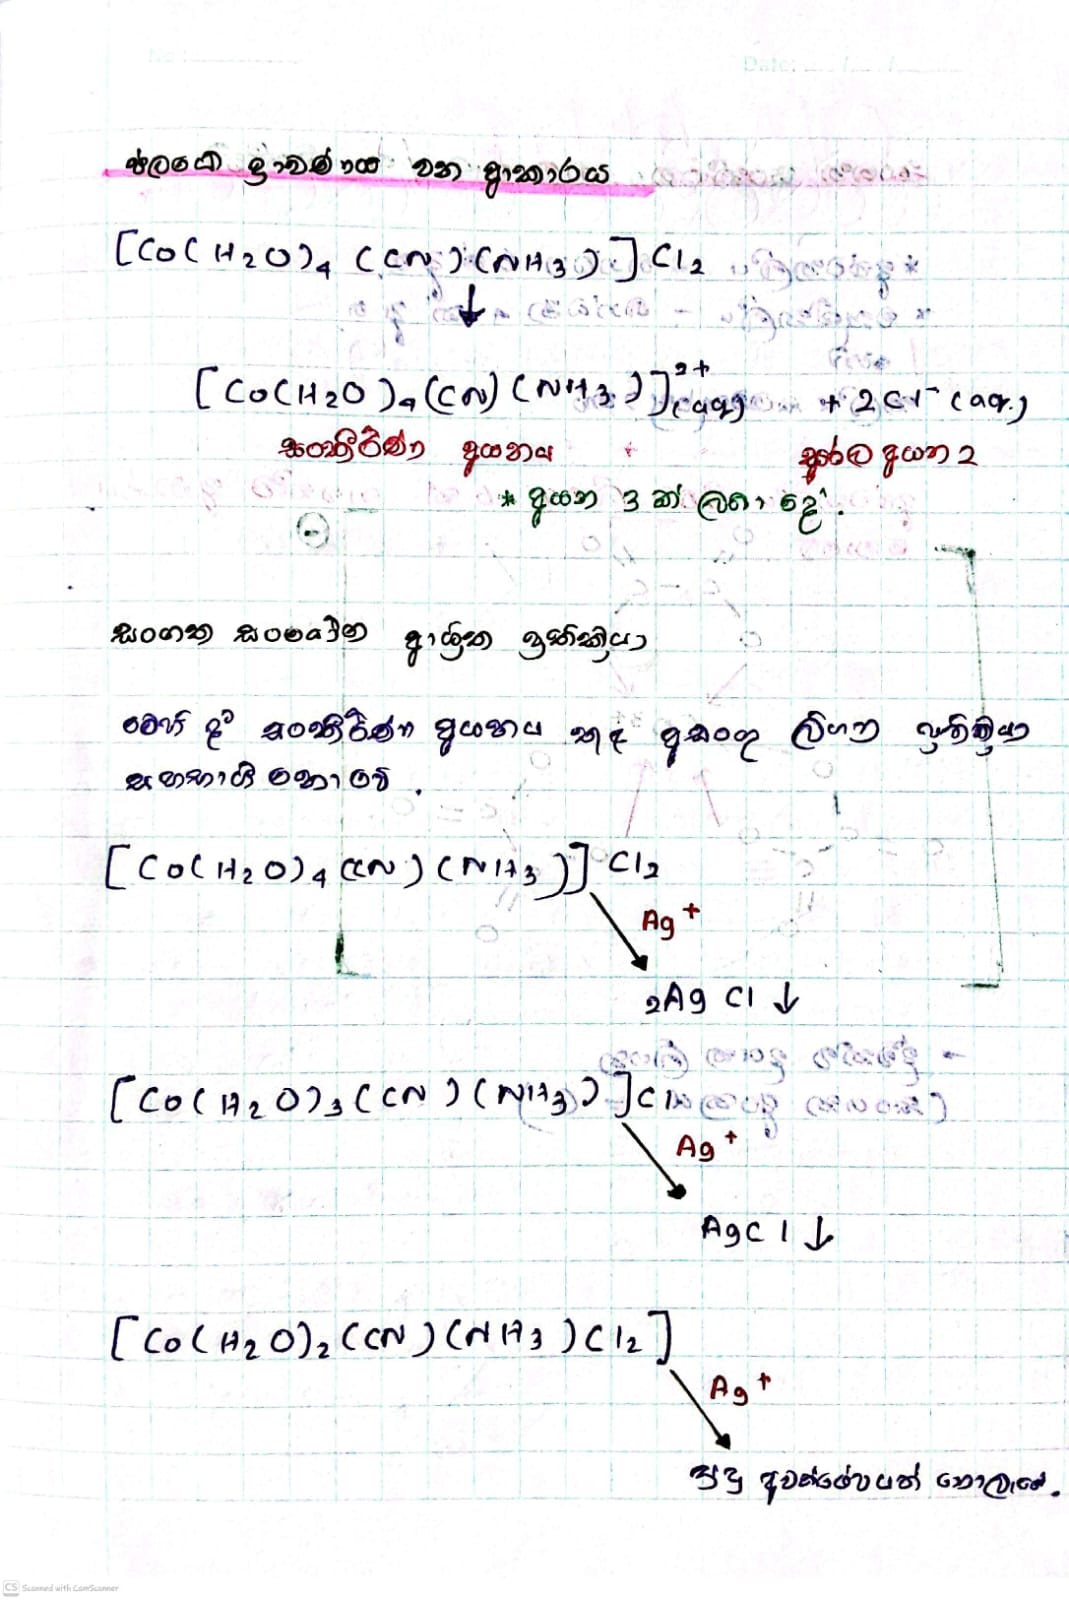 ජලයේ ද්‍රාවණය වන ආකාරය
[Co(H₂O)₄ (CN)(NH₃)]Cl₂
↓
[Co(H₂O)₄(CN)(NH₃)]²⁺(aq) + 2Cl⁻(aq.)
සංකීර්ණ අයනය සරල අයන 2
* අයන 3 ක් ලබා දේ.
සංගත සංයෝග ආශ්‍රිත ප්‍රතික්‍රියා
මෙහි දී සංකීර්ණ අයනය තුළ අඩංගු ලිගන ප්‍රතික්‍රියා
සහභාගි නොවේ.
[Co(H₂O)₄(CN)(NH₃)]Cl₂
Ag⁺
2AgCl↓
[Co(H₂O)₃(CN)(NH₃)]Cl
Ag⁺
AgCl↓
[Co(H₂O)₂(CN)(NH₃)Cl₂]
Ag⁺
සුදු අවක්ෂේපයක් නොලැබේ.
CS Scanned with CamScanner